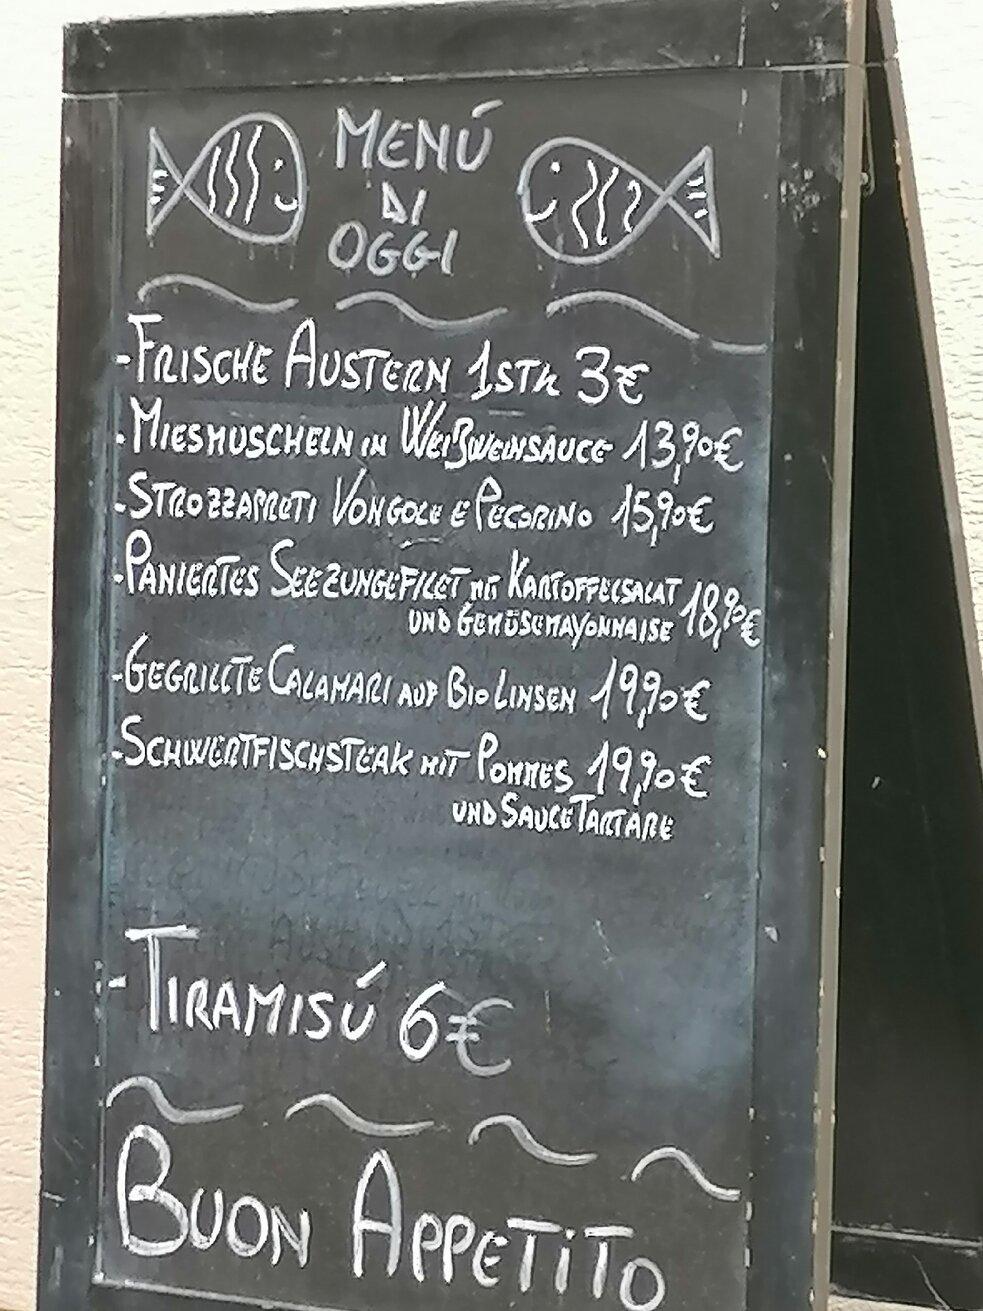 MENÚ
DI
OGGI
-FRISCHE AUSTERN 1STK 3€
·MIESMUSCHELN IN WEIßWEINSAUCE 13,90€
·STROZZAPRETI VONGOLE E PECORINO 15,90€
·PANIERTES SEEZUNGEFILET MIT KARTOFFELSALAT 18,90€
UND GEMÜSEMAYONNAISE
-GEGRILLTE CALAMARI AUF BIO LINSEN 19,90€
-SCHWERTFISCHSTEAK MIT POMMES 19,90€
UND SAUCE TARTARE
-TIRAMISÚ 6€
BUON APPETITO